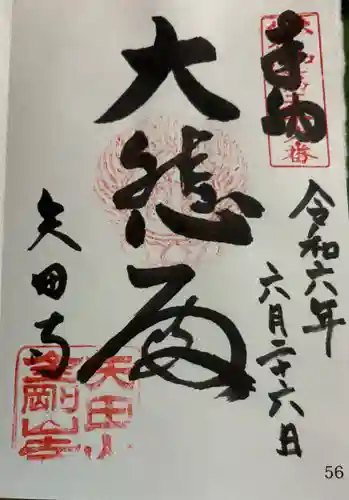 奉納
令和六年
六月二十六日
大
矢田寺
矢田山
金剛山寺
56